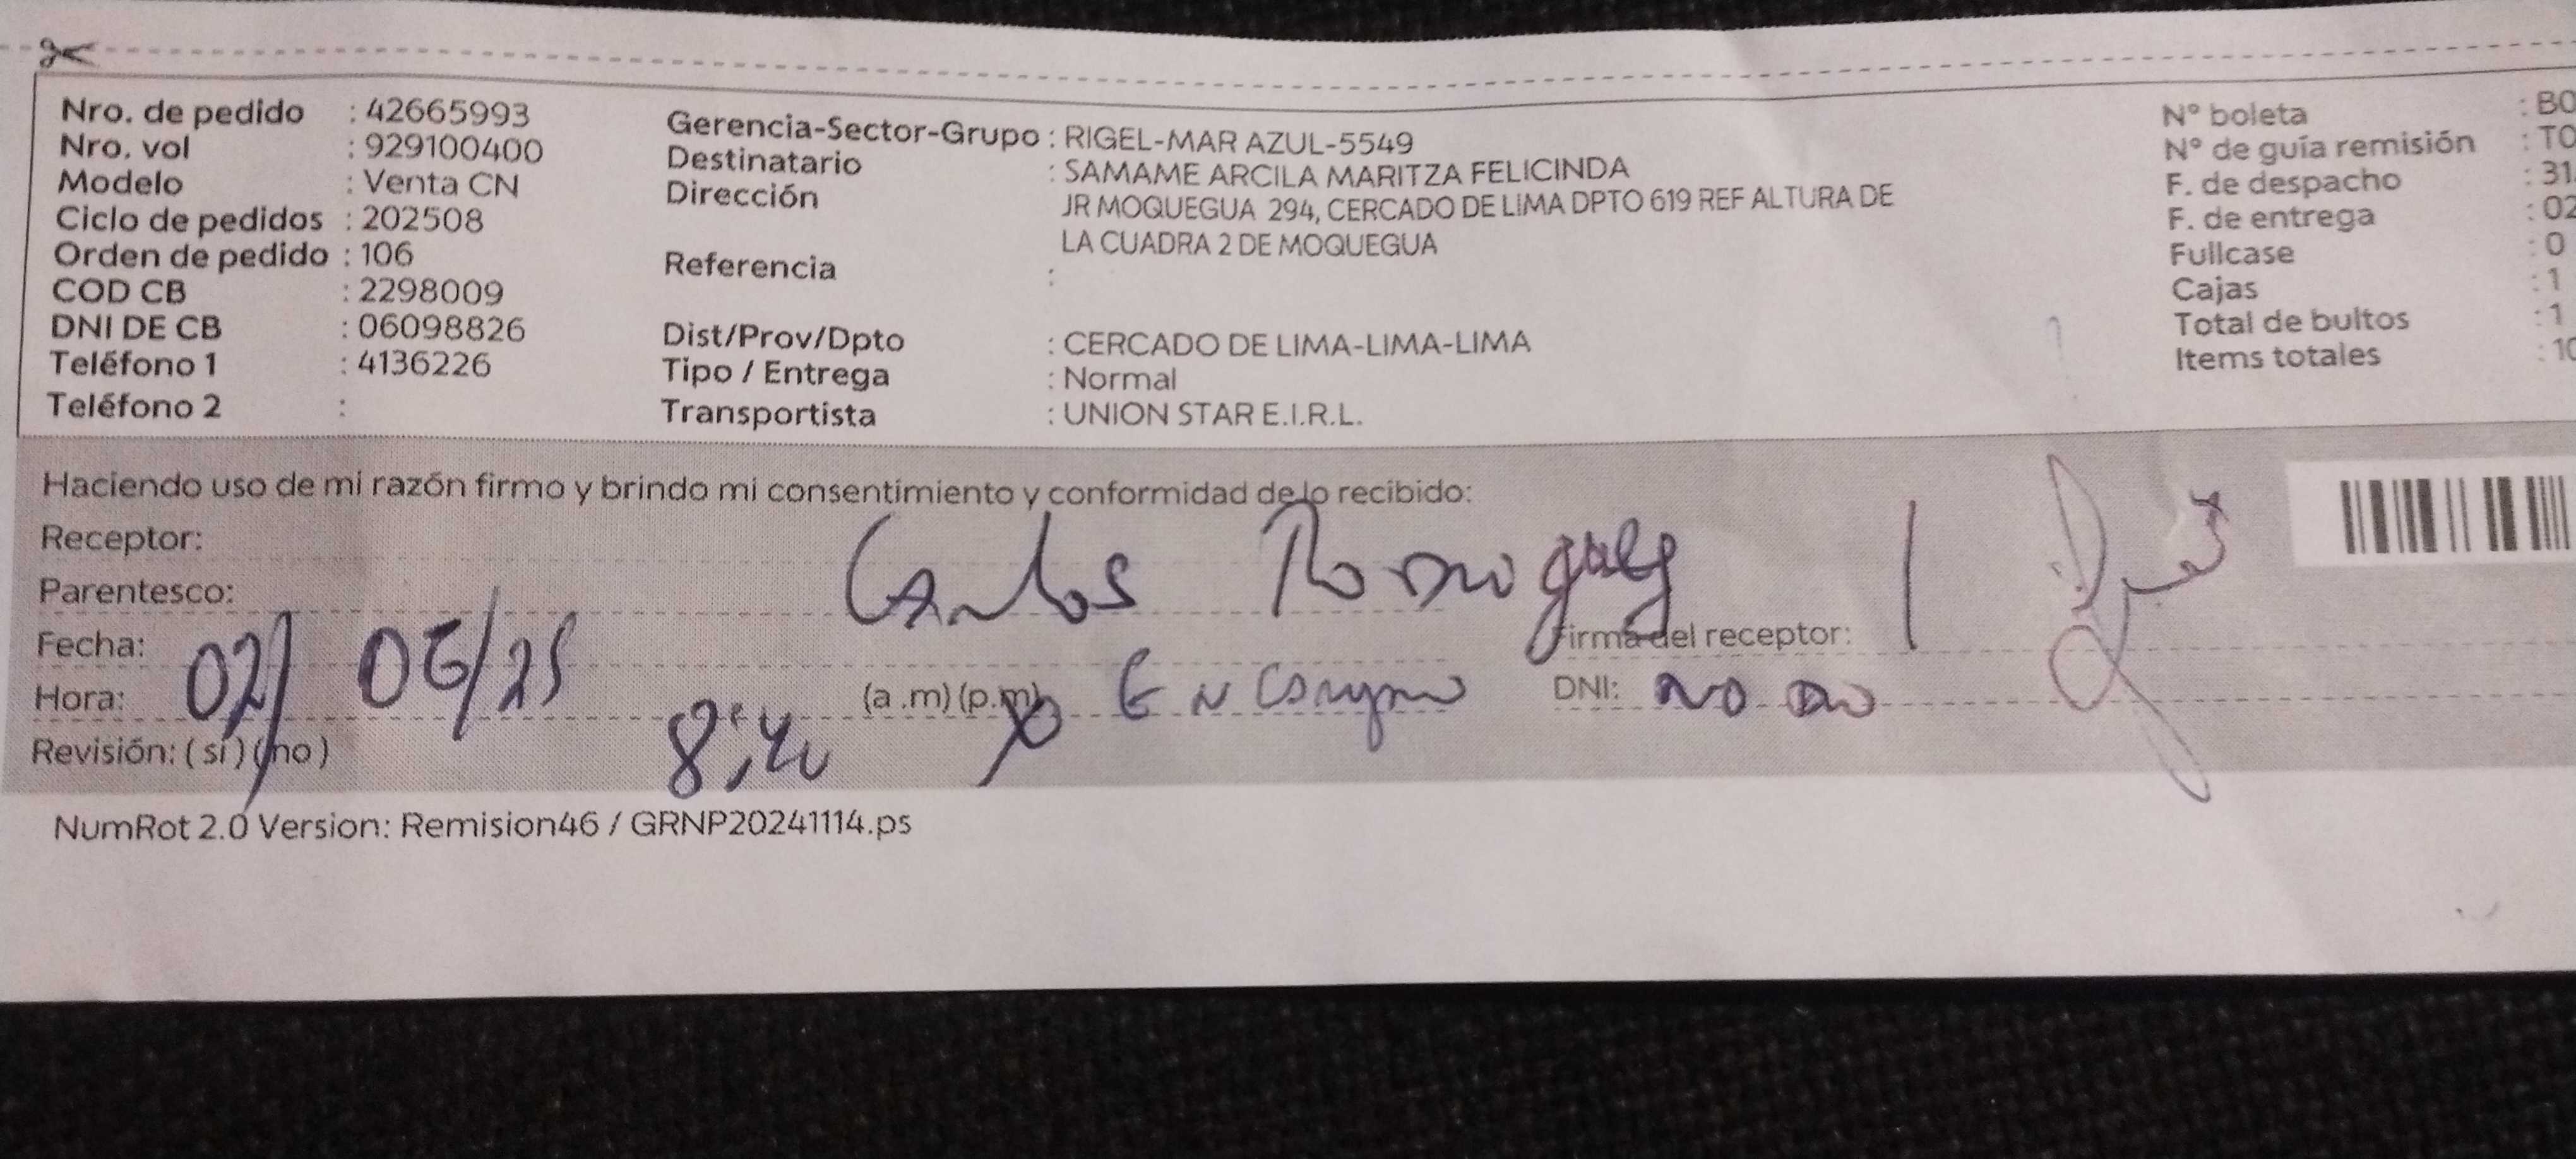 Nro. de pedido : 42665993
Nro. vol : 929100400
Modelo : Venta CN
Ciclo de pedidos : 202508
Orden de pedido : 106
COD CB : 2298009
DNI DE CB : 06098826
Teléfono 1 : 4136226
Teléfono 2 :
Gerencia-Sector-Grupo : RIGEL-MAR AZUL-5549
Destinatario : SAMAME ARCILA MARITZA FELICINDA
Dirección : JR MOQUEGUA 294, CERCADO DE LIMA DPTO 619 REF ALTURA DE
LA CUADRA 2 DE MOQUEGUA
Referencia :
Dist/Prov/Dpto : CERCADO DE LIMA-LIMA-LIMA
Tipo / Entrega : Normal
Transportista : UNION STAR E.I.R.L.
N° boleta : B0
N° de guía remisión : T0
F. de despacho : 31
F. de entrega : 02
Fullcase : 0
Cajas : 1
Total de bultos : 1
Items totales : 10
Haciendo uso de mi razón firmo y brindo mi consentimiento y conformidad de lo recibido:
Receptor: Carlos
Parentesco:
Fecha: 02/06/25
Firma del receptor:
Hora: 8:40 (a.m) (p.m)
DNI: no
Revisión: ( sí ) ( no )
NumRot 2.0 Version: Remision46 / GRNP20241114.ps